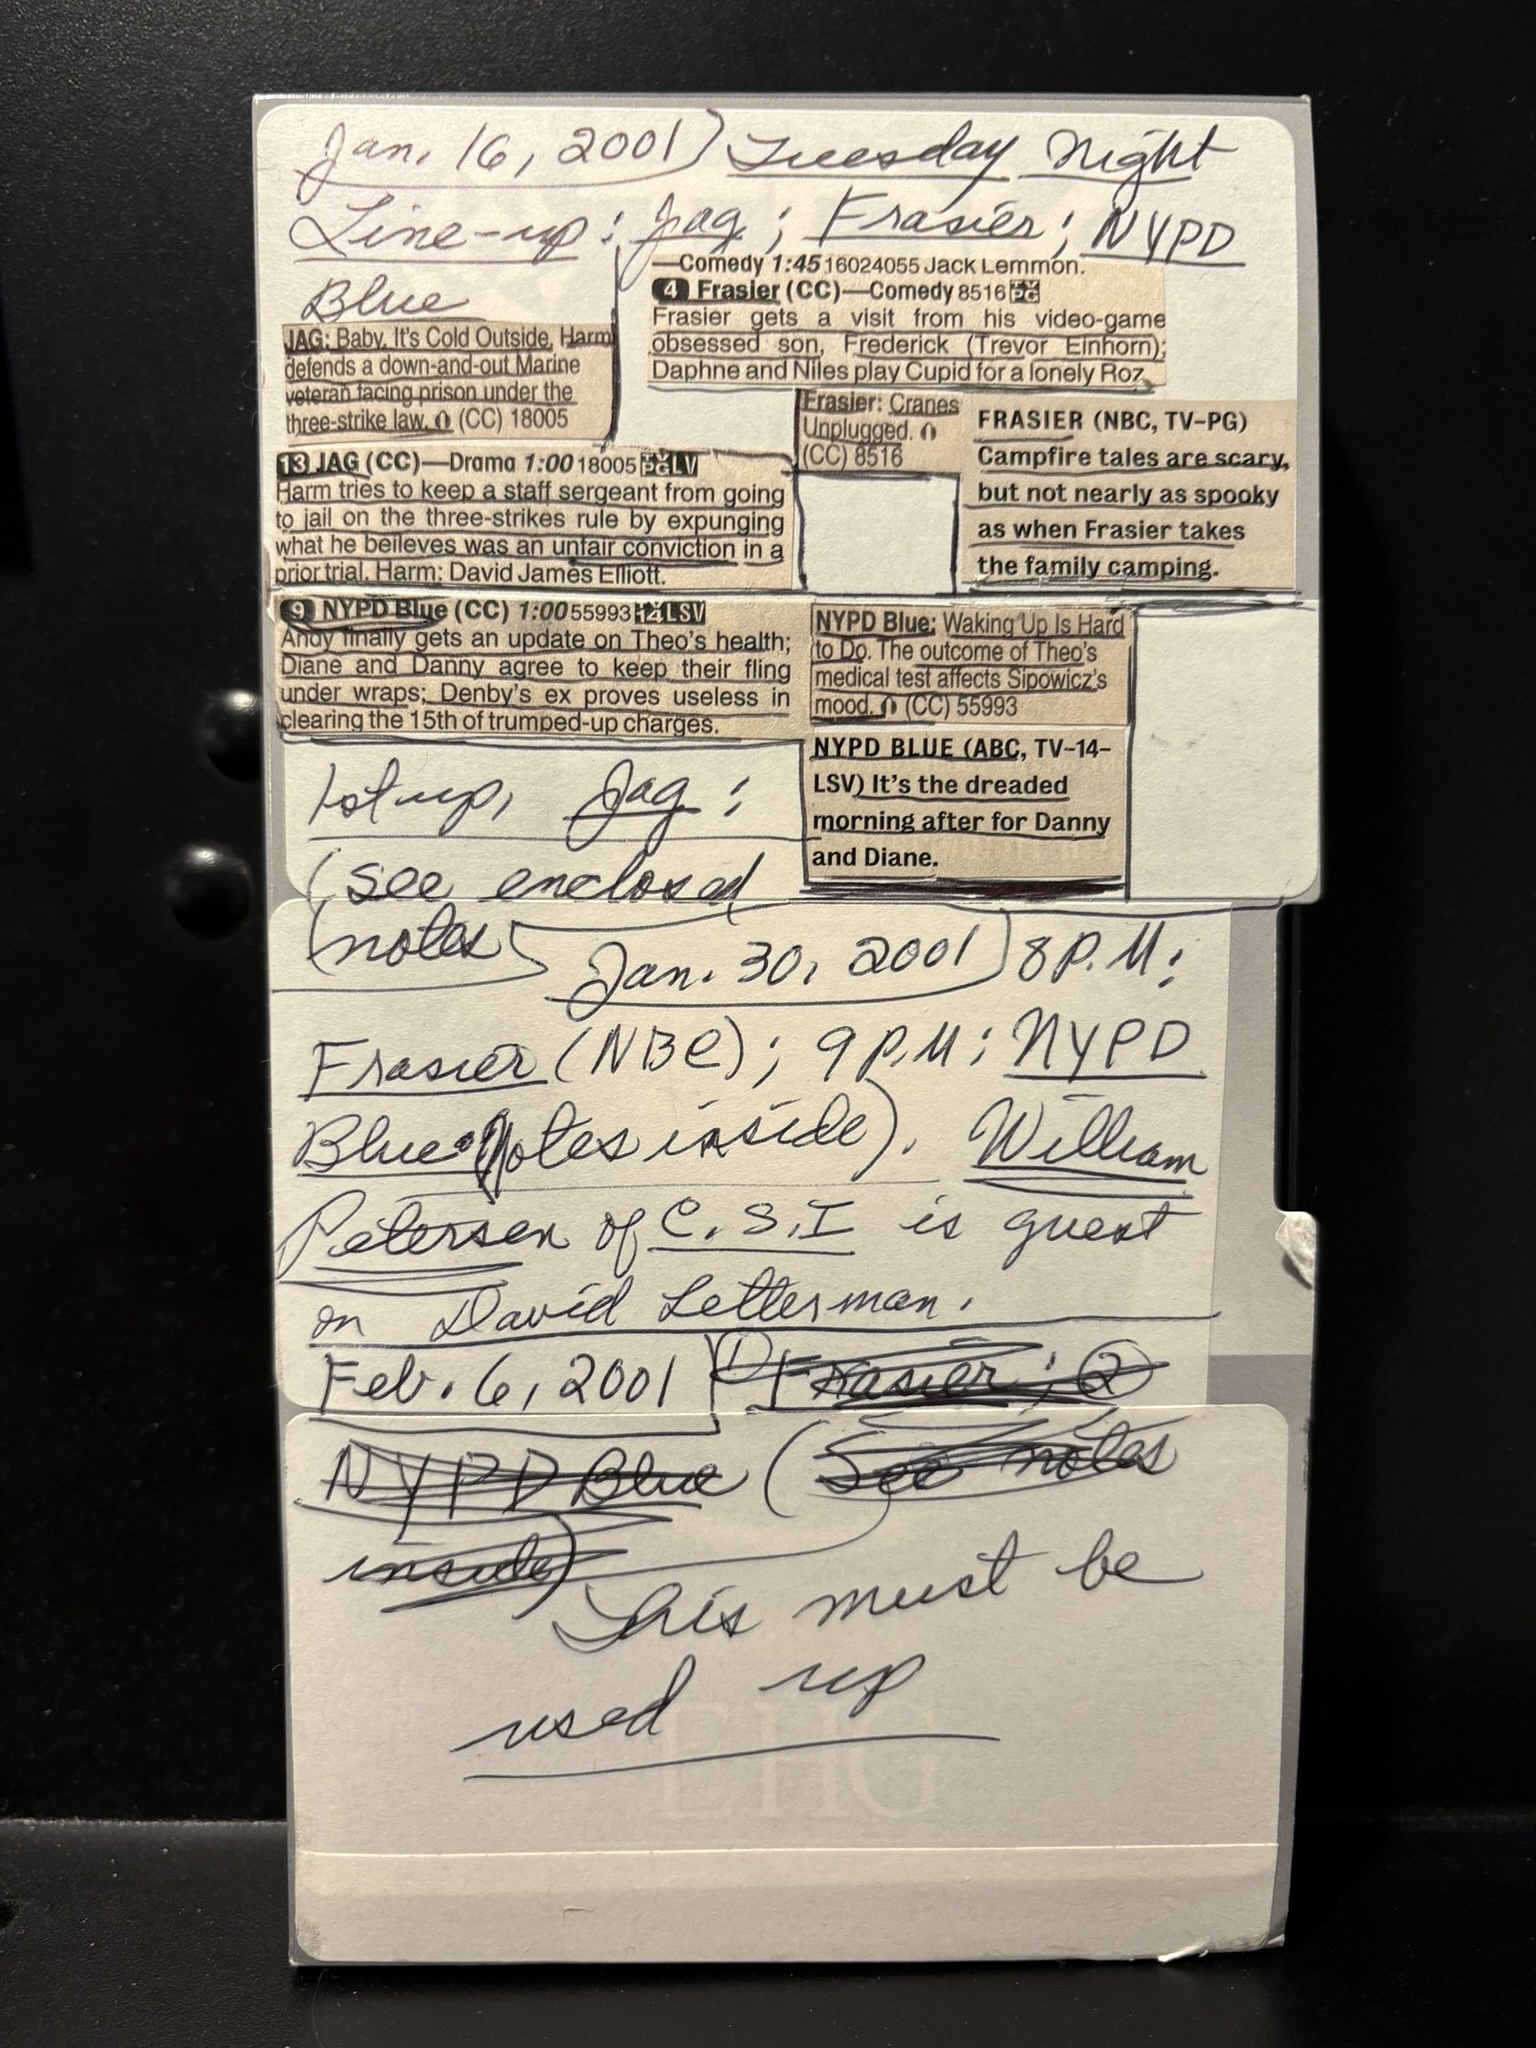 Jan. 16, 2001) Tuesday Night
Line-up: Jag; Frasier; NYPD
Blue
—Comedy 1:45 16024055 Jack Lemmon.
4 Frasier (CC)—Comedy 8516 TV PG
Frasier gets a visit from his video-game
obsessed son, Frederick (Trevor Einhorn);
Daphne and Niles play Cupid for a lonely Roz.
JAG: Baby, It's Cold Outside. Harm
defends a down-and-out Marine
veteran facing prison under the
three-strike law. (CC) 18005
Frasier: Cranes
Unplugged.
(CC) 8516
FRASIER (NBC, TV-PG)
Campfire tales are scary,
but not nearly as spooky
as when Frasier takes
the family camping.
13 JAG (CC)—Drama 1:00 18005 TV PG LV
Harm tries to keep a staff sergeant from going
to jail on the three-strikes rule by expunging
what he believes was an unfair conviction in a
prior trial. Harm: David James Elliott.
9 NYPD Blue (CC) 1:00 55993 TV 14 LSV
Andy finally gets an update on Theo's health;
Diane and Danny agree to keep their fling
under wraps; Denby's ex proves useless in
clearing the 15th of trumped-up charges.
NYPD Blue: Waking Up Is Hard
to Do. The outcome of Theo's
medical test affects Sipowicz's
mood. (CC) 55993
NYPD BLUE (ABC, TV-14-
LSV) It's the dreaded
morning after for Danny
and Diane.
1st up, Jag:
(see enclosed
(notes
Jan. 30, 2001) 8 P.M:
Frasier (NBC); 9 P.M: NYPD
Blue (Notes inside). William
Petersen of C.S.I is guest
on David Letterman.
Feb. 6, 2001) 1) Frasier; 2
NYPD Blue (See notes
inside)
This must be
used up
EHG